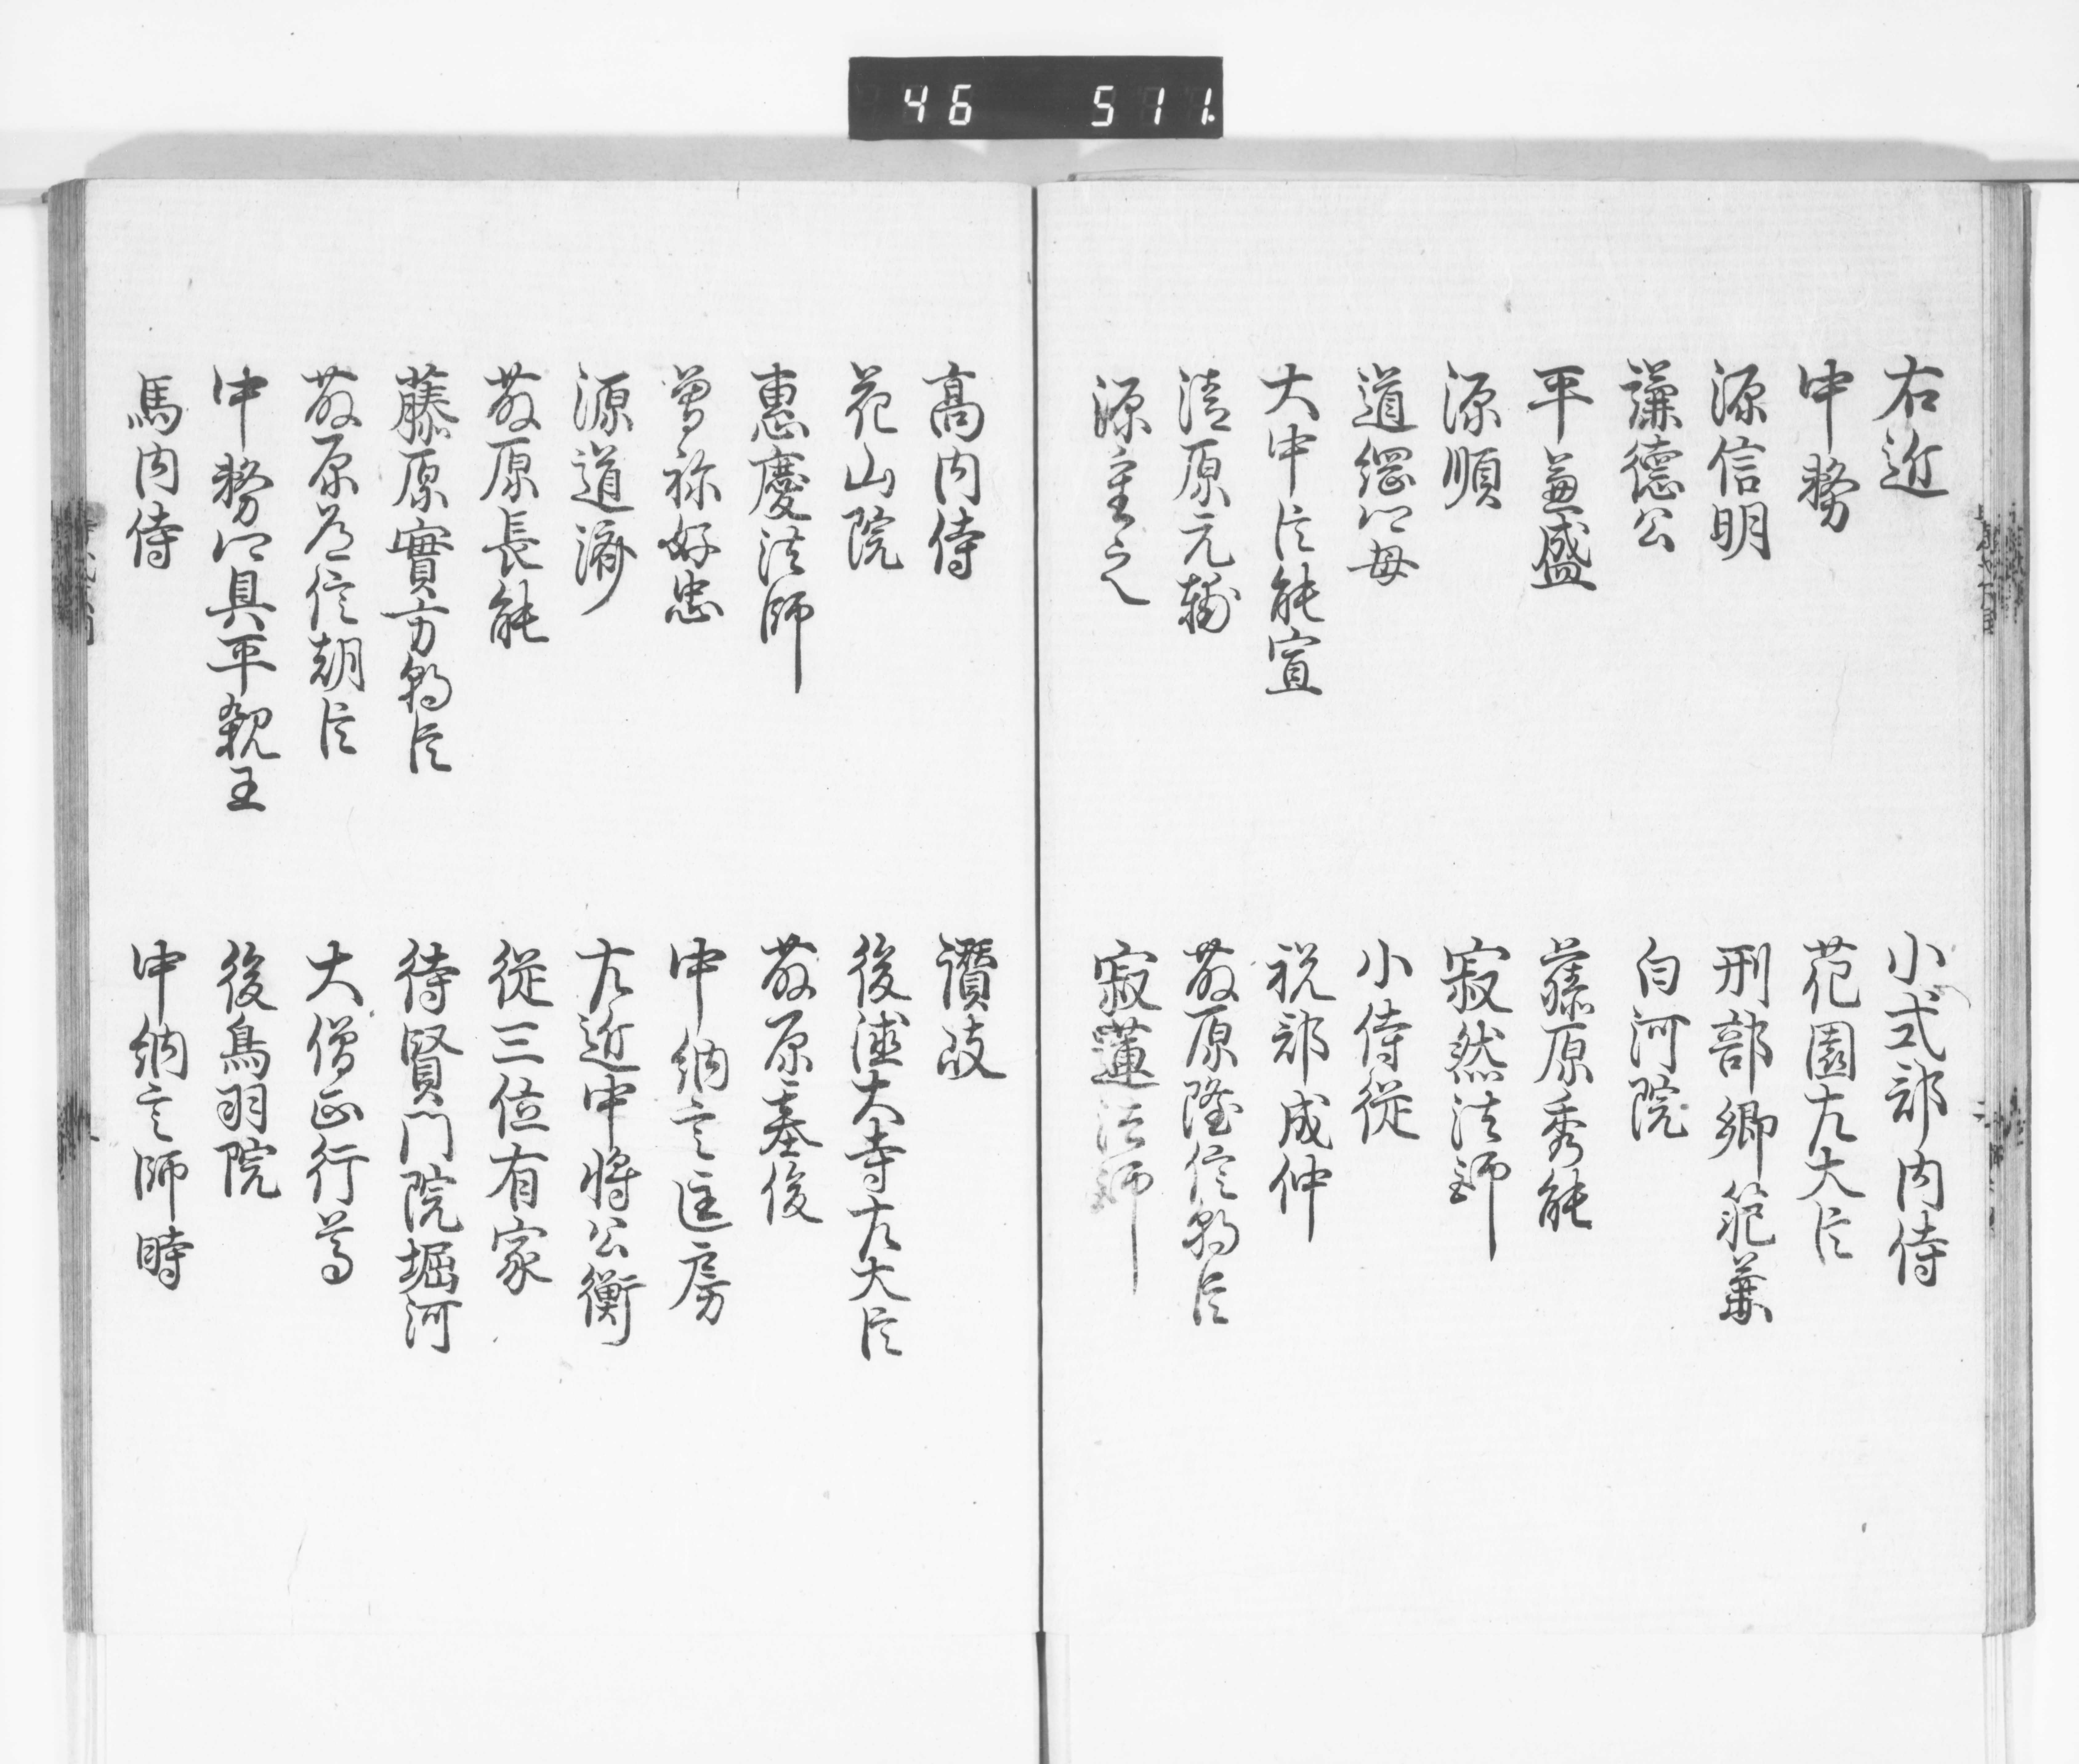 46 511
右近
中務
源信明
謙德公
平兼盛
源順
道綱公母
大中臣能宣
清原元輔
源重之
小式部内侍
花園左大臣
刑部卿範兼
白河院
藤原秀能
寂然法師
小侍従
祝部成仲
藤原隆信朝臣
寂蓮法師
高内侍
花山院
惠慶法師
曽祢好忠
源道済
藤原長能
藤原實方朝臣
藤原道信朝臣
中務公具平親王
馬内侍
讃岐
後德大寺左大臣
藤原基俊
中納言匡房
左近中将公衡
従三位有家
待賢門院堀河
大僧正行尊
後鳥羽院
中納言師時